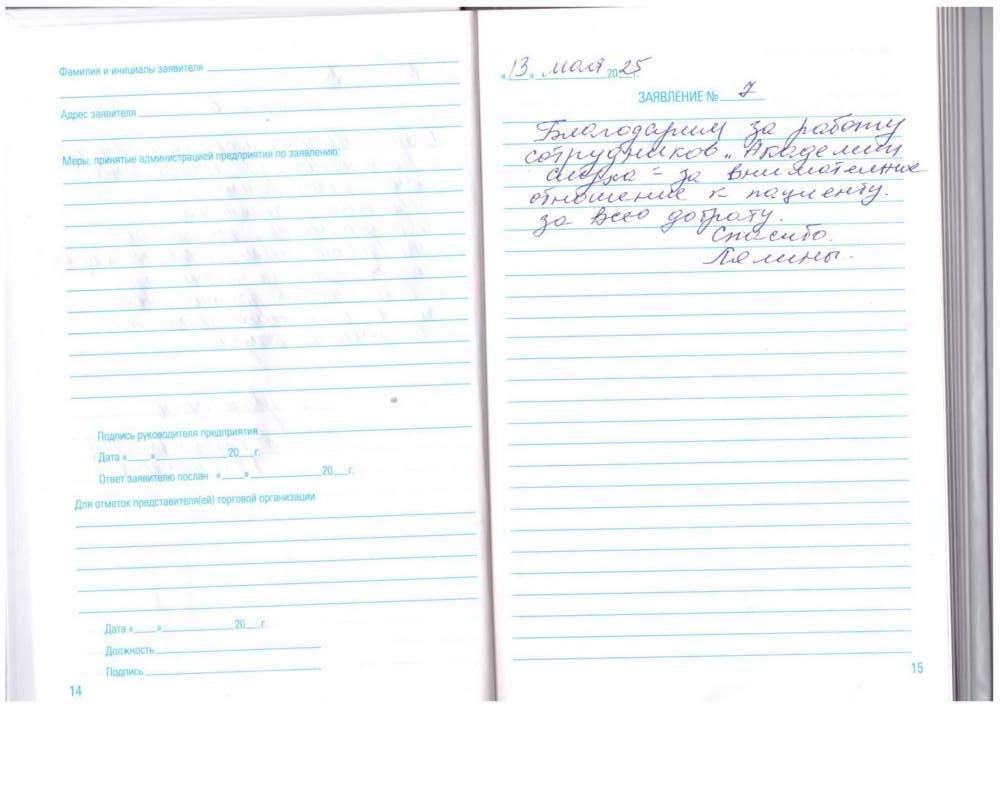 Фамилия и инициалы заявителя
Адрес заявителя
Меры, принятые администрацией предприятия по заявлению:
Подпись руководителя предприятия
Дата « » 20 г.
Ответ заявителю послан « » 20 г.
Для отметок представителя(ей) торговой организации
Дата « » 20 г.
Должность
Подпись
14
«13» мая 2025г.
ЗАЯВЛЕНИЕ № 7
Благодарим за работу
сотрудников „Академии
слуха" за внимателное
отношение к пациенту.
за всею доброту.
Спасибо.
Лялины.
15